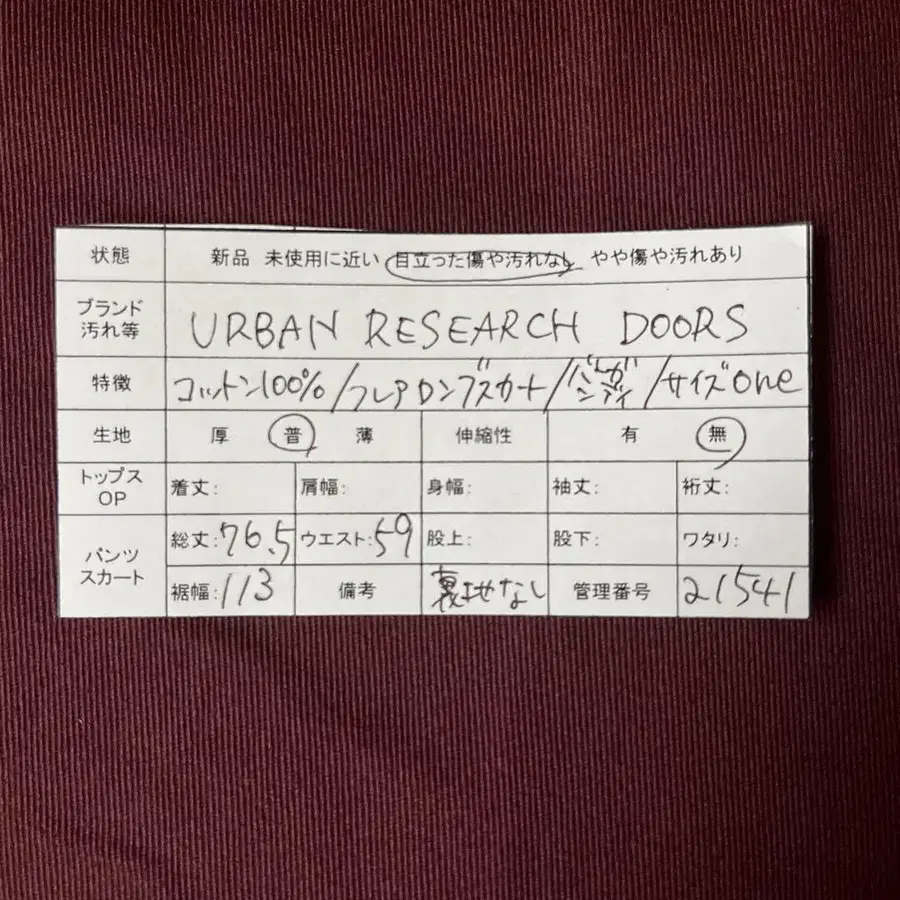 状態 新品 未使用に近い 目立った傷や汚れなし やや傷や汚れあり
ブランド
汚れ等 URBAN RESEARCH DOORS
特徴 コットン100%/フレアロングスカート/バーガンディ/サイズone
生地 厚 普 薄 伸縮性 有 無
トップス
OP 着丈: 肩幅: 身幅: 袖丈: 裄丈:
パンツ
スカート 総丈:76.5 ウエスト:59 股上: 股下: ワタリ:
裾幅:113 備考 裏地なし 管理番号 21541